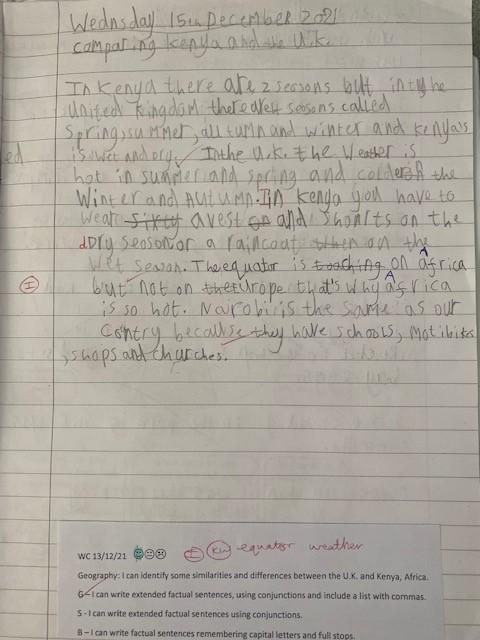 Wednsday 15th December 2021
comparing Kenya and the U.K.
In Kenya there are 2 seasons but in the
United Kingdom there are 4 seosons called
Spring, summer, autumn and winter and Kenya's
ed
is wet and dry. In the U.K. the Weather is
hot in summer and spring and colder in the
Winter and Autumn. In Kenya you have to
wear a vest and shorts on the
Dry season or a raincoat on the
wet season. The equator is on Africa
I
but not on Europe that's why Africa
is so hot. Nairobi is the same as our
Contry because they have schools,
, shops and churches.
WC 13/12/21 I KW equator weather
Geography: I can identify some similarities and differences between the U.K. and Kenya, Africa.
G – I can write extended factual sentences, using conjunctions and include a list with commas.
S - I can write extended factual sentences using conjunctions.
B – I can write factual sentences remembering capital letters and full stops.